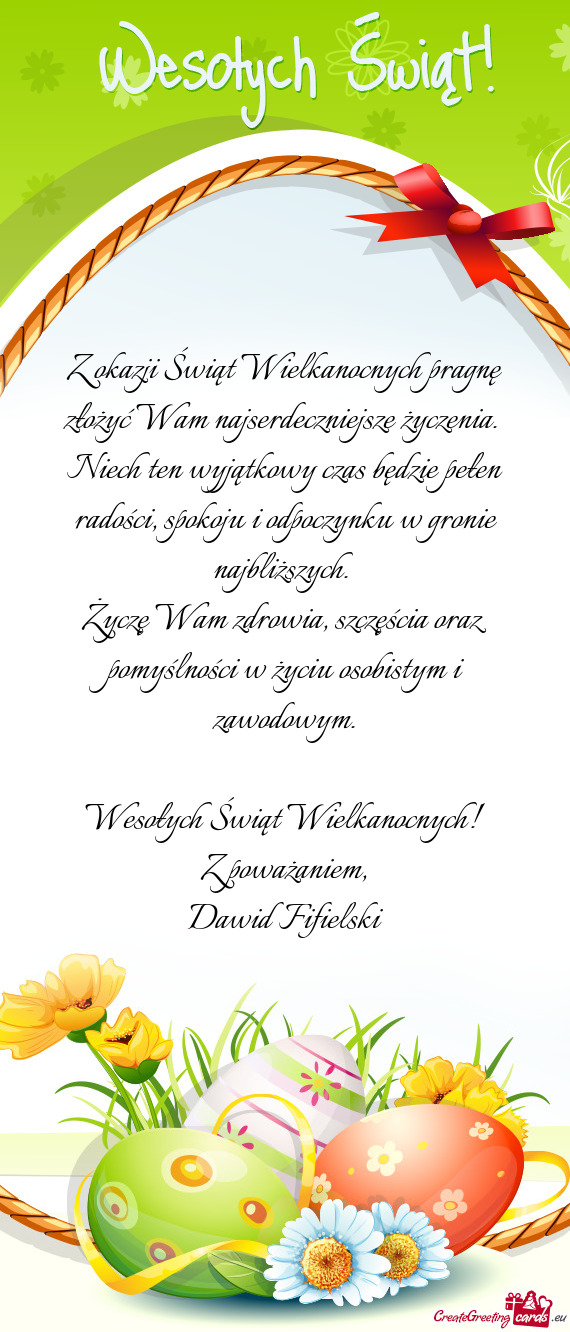 Wesołych Świąt!
Z okazji Świąt Wielkanocnych pragnę
złożyć Wam najserdeczniejsze życzenia.
Niech ten wyjątkowy czas będzie pełen
radości, spokoju i odpoczynku w gronie
najbliższych.
Życzę Wam zdrowia, szczęścia oraz
pomyślności w życiu osobistym i
zawodowym.
Wesołych Świąt Wielkanocnych!
Z poważaniem,
Dawid Fifielski
CreateGreeting cards .eu